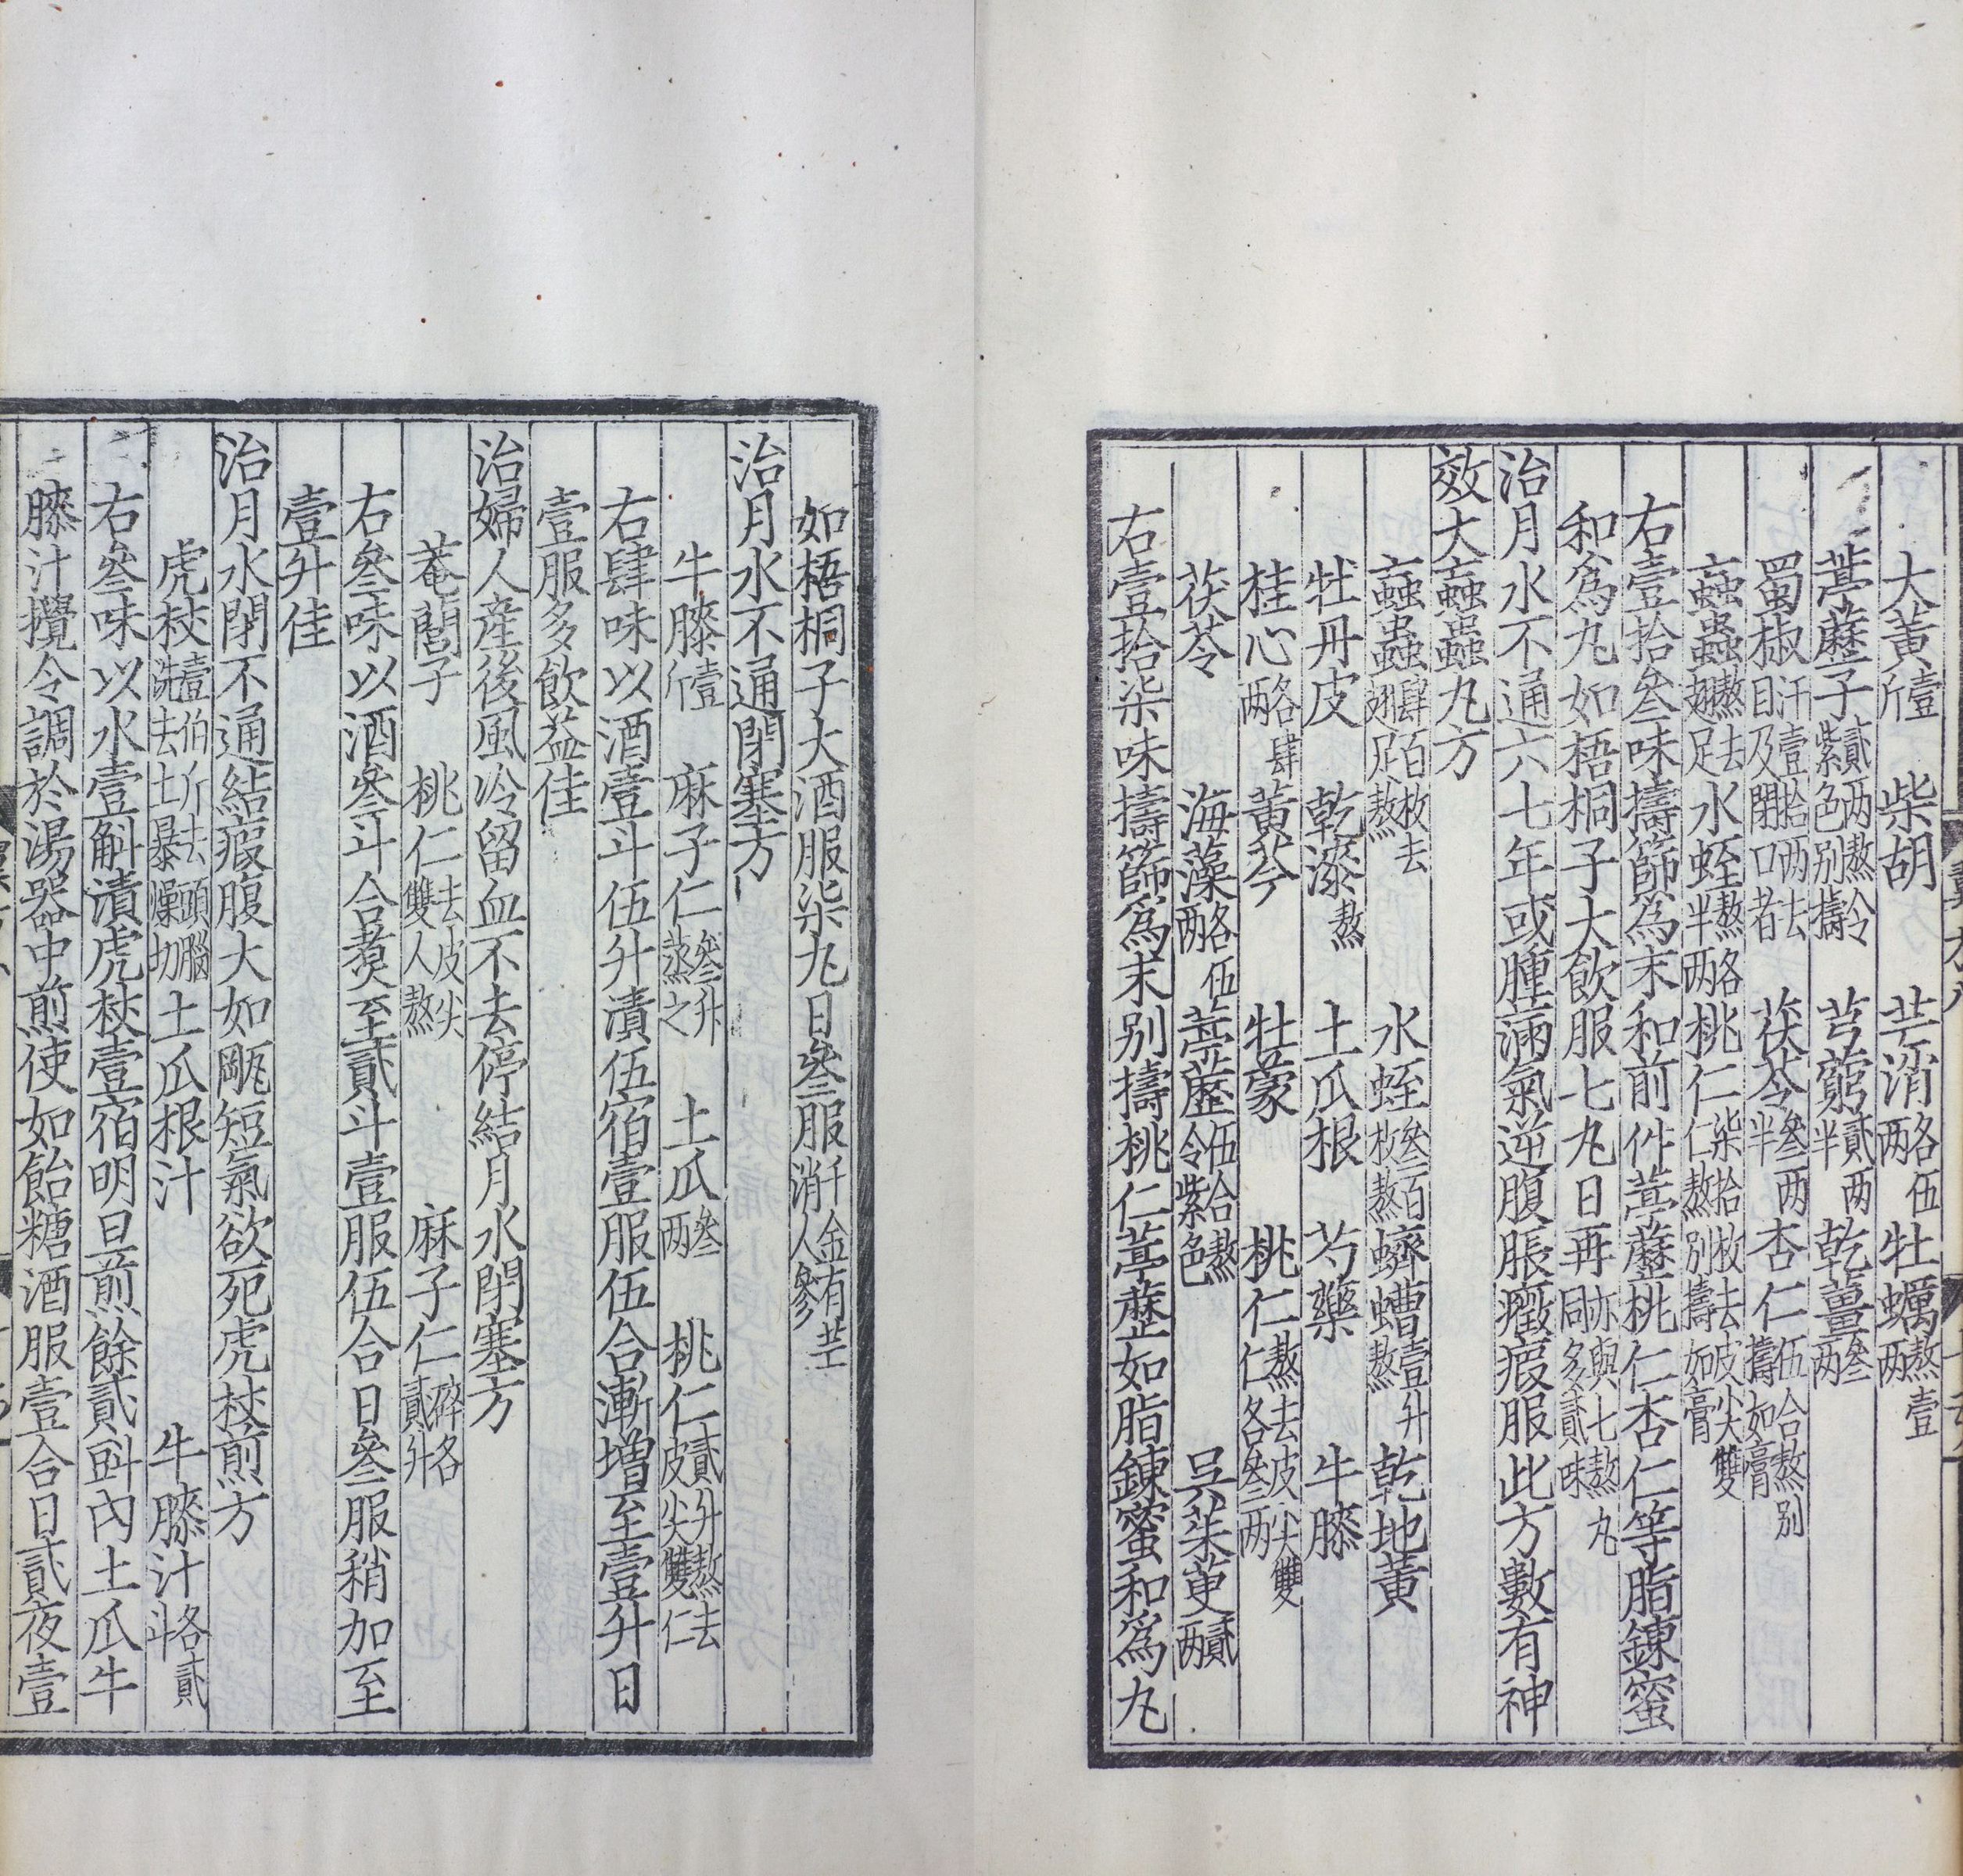 大黃壹斤　柴胡　芒消各伍兩　牡蠣熬壹兩
葶藶子貳兩熬令紫色別擣　芎藭貳兩半　乾薑叁兩
蜀椒汗壹拾兩去目及閉口者　茯苓叁兩半　杏仁伍合熬別擣如膏
蝱蟲熬去翅足　水蛭熬各半兩　桃仁柒拾枚去皮尖雙仁熬別擣如膏
右壹拾叁味擣篩爲末和前件葶藶桃仁杏仁等脂鍊蜜
和爲丸如梧桐子大飲服七丸日再亦與七熬丸同多貳味
治月水不通六七年或腫滿氣逆腹脹癥瘕服此方數有神
效大蝱蟲丸方
蝱蟲肆百枚去翅足熬　水蛭叁百枚熬　蠐螬壹升熬　乾地黃
牡丹皮　乾漆熬　土瓜根　芍藥　牛膝
桂心各肆兩　黃芩　牡蒙　桃仁熬去皮尖雙仁各叁兩
茯苓　海藻各伍兩　葶藶伍合熬令紫色　吳茱萸貳兩
右壹拾柒味擣篩爲末別擣桃仁葶藶如脂鍊蜜和爲丸
如梧桐子大酒服柒丸日叁服千金有芒消人參
治月水不通閉塞方
牛膝壹斤　麻子仁叁升蒸之　土瓜叁兩　桃仁貳升熬去皮尖雙仁
右肆味以酒壹斗伍升漬伍宿壹服伍合漸增至壹升日
壹服多飲益佳
治婦人産後風冷留血不去停結月水閉塞方
菴䕡子　桃仁去皮尖雙人熬　麻子仁碎各貳升
右叁味以酒叁斗合煑至貳斗壹服伍合日叁服稍加至
壹升佳
治月水閉不通結瘕腹大如甌短氣欲死虎杖煎方
虎杖壹伯斤去頭腦洗去土暴燥切　土瓜根汁　牛膝汁各貳斗
右叁味以水壹斛漬虎杖壹宿明旦煎餘貳㪷內土瓜牛
膝汁攪令調於湯器中煎使如飴糖酒服壹合日貳夜壹